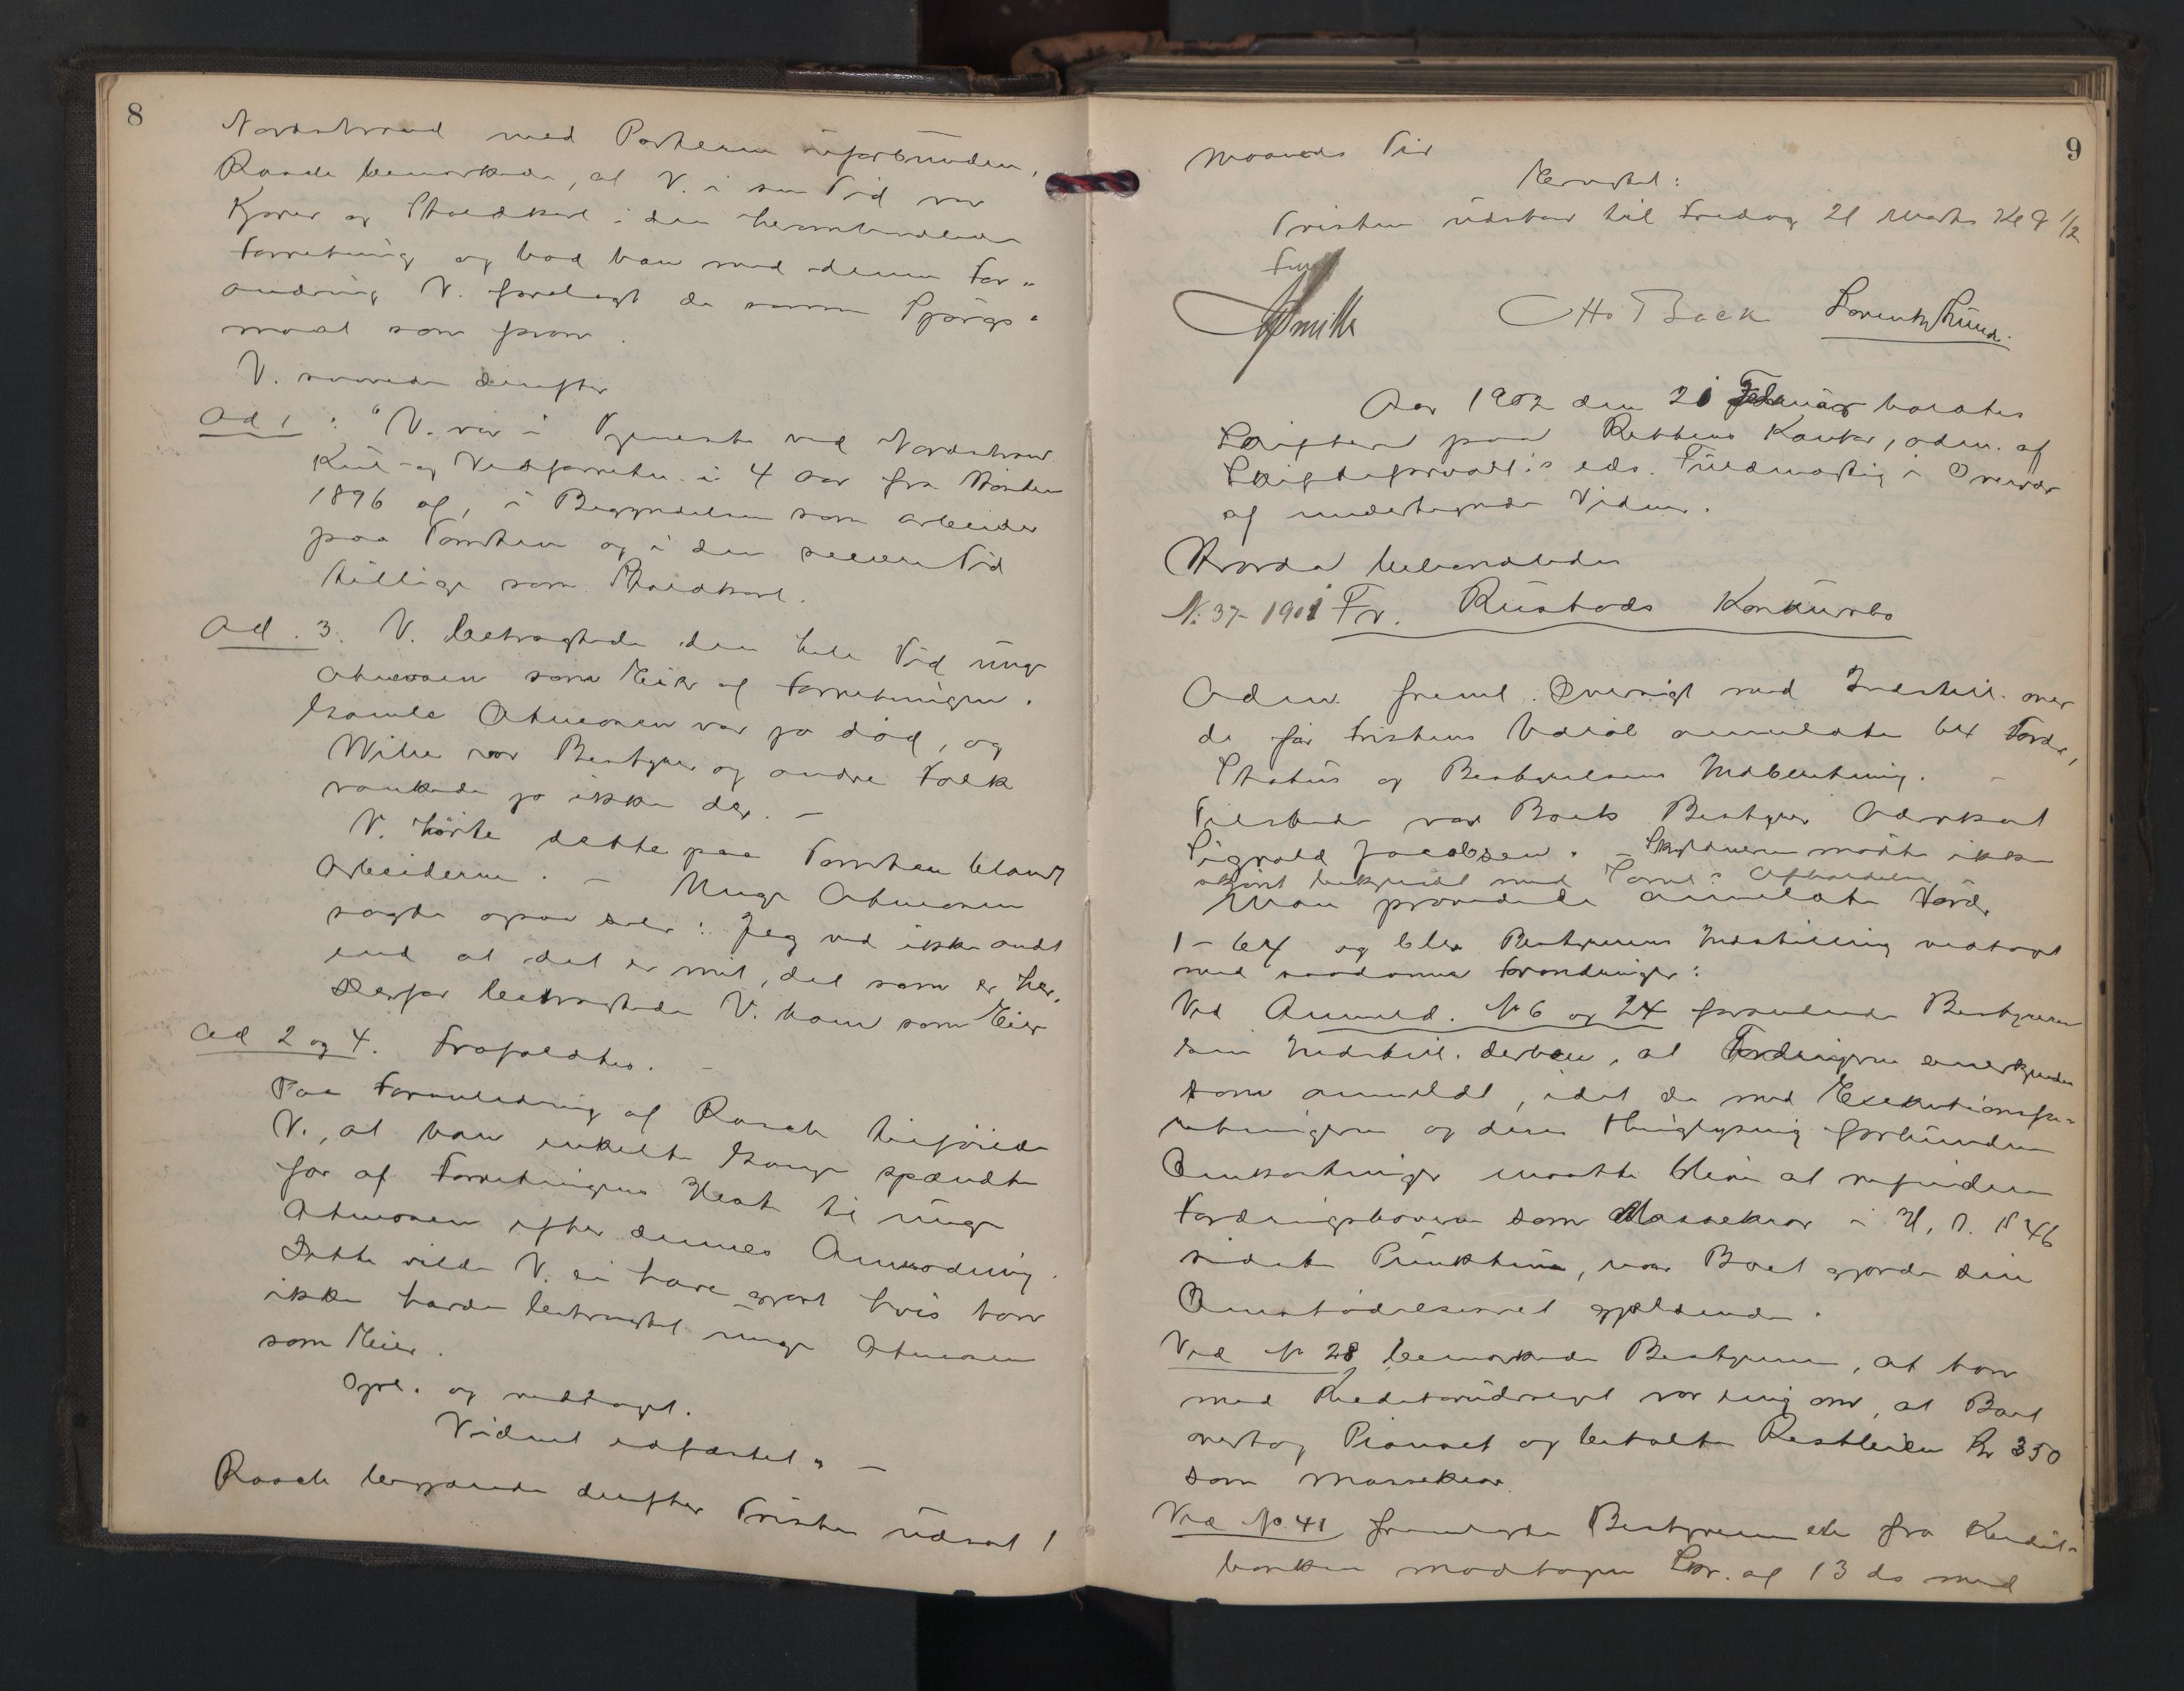 8
Nordstrand med Parterne uforbunden,
Raade bemærkede, at V. i sin Tid var
Kjører og Staldkarl i den heromhandlede
Forretning og bad ham med denne For-
andring V. forelagt de samme Spørgs-
maal som foran.
V. svarede derefter
ad 1: "V. var i Tjeneste ved Nordstrand
Kul- og Vedforretn. i 4 Aar fra Høsten
1896 af, i Begyndelsen som Arbeider
paa Tomten og i den senere Tid
tillige som Staldkarl.
ad. 3. V. betragtede den hele Tid unge
som Eier af Forretningen.
Gamle var jo død, og
Wilse var Bestyrer og andre Folk
vankede jo ikke der. –
V. hørte dette paa Tomten blandt
Arbeiderne. – Unge
sagde ogsaa selv: Jeg ved ikke andt
end at det er mit, det som er her.
Derfor betragtede V. ham som Eier
ad 2 og 4. Frafaldtes. –
Paa Foranledning af Raade tilføiede
V., at han enkelte Gange spændte
for af Forretningens Heste til unge
efter dennes Anmodning.
Dette vilde V. ei have gjort hvis han
ikke havde betragtet unge
som Eier.
Opl. og vedtaget.
Vidnet edfæstet" –
Raade begjærede derefter Fristen udsat 1
9
Maaneds Tid
Eragtet:
Fristen udstaar til Fredag 21 Marts Kl 9 1/2
Fm
Smith Otto Back Lorentz Lund.
Aar 1902 den 21 Februar holdtes
Skifteret paa Rettens Kontor, adm. af
Skifteforvalt.s eds. Fuldmægtig i Overvær
af undertegnede Vidner.
Hvorda behandledes
No 37-1901 Fr. Rustads Konkursbo
Adm. freml. Oversigt med Indstill. over
de før Fristens Udløb anmeldte 64 Fordr.,
Status og Bestyrelsens Indberetning. –
Tilstede var Boets Bestyrer Advokat
Sigvald Jacobsen. – Skyldneren mødte ikke
skjønt bekjendt med Saml.s Afholdelse
Man prøvede de anmeldte Fordr.
1 – 64 og blev Bestyrerens Indstilling vedtaget
med saadanne Forandringer:
Ved Anmeld. No 6 og 24 forandrede Bestyreren
sin Indstill. derhen, at Fordringerne anerkjendes
som anmeldt, idet de med Exekutionsfor-
retningerne og deres Thinglysning forbundne
Omkostninger maatte blive at refundere
Fordringshaverne som Massekrav i H. t. § 46
sidste Punktum, naar Boet gjorde sin
Omstødelsesret gjældende.
Ved No 28 bemærkede Bestyreren, at han
med Kreditorudvalget var enig om, at Boet
overtog Pianoet og betalte Restleien Kr 350
som Massekrav.
Ved No 41 fremlagde Bestyreren et fra Kredit-
banken modtagen Skr. af 13 ds med